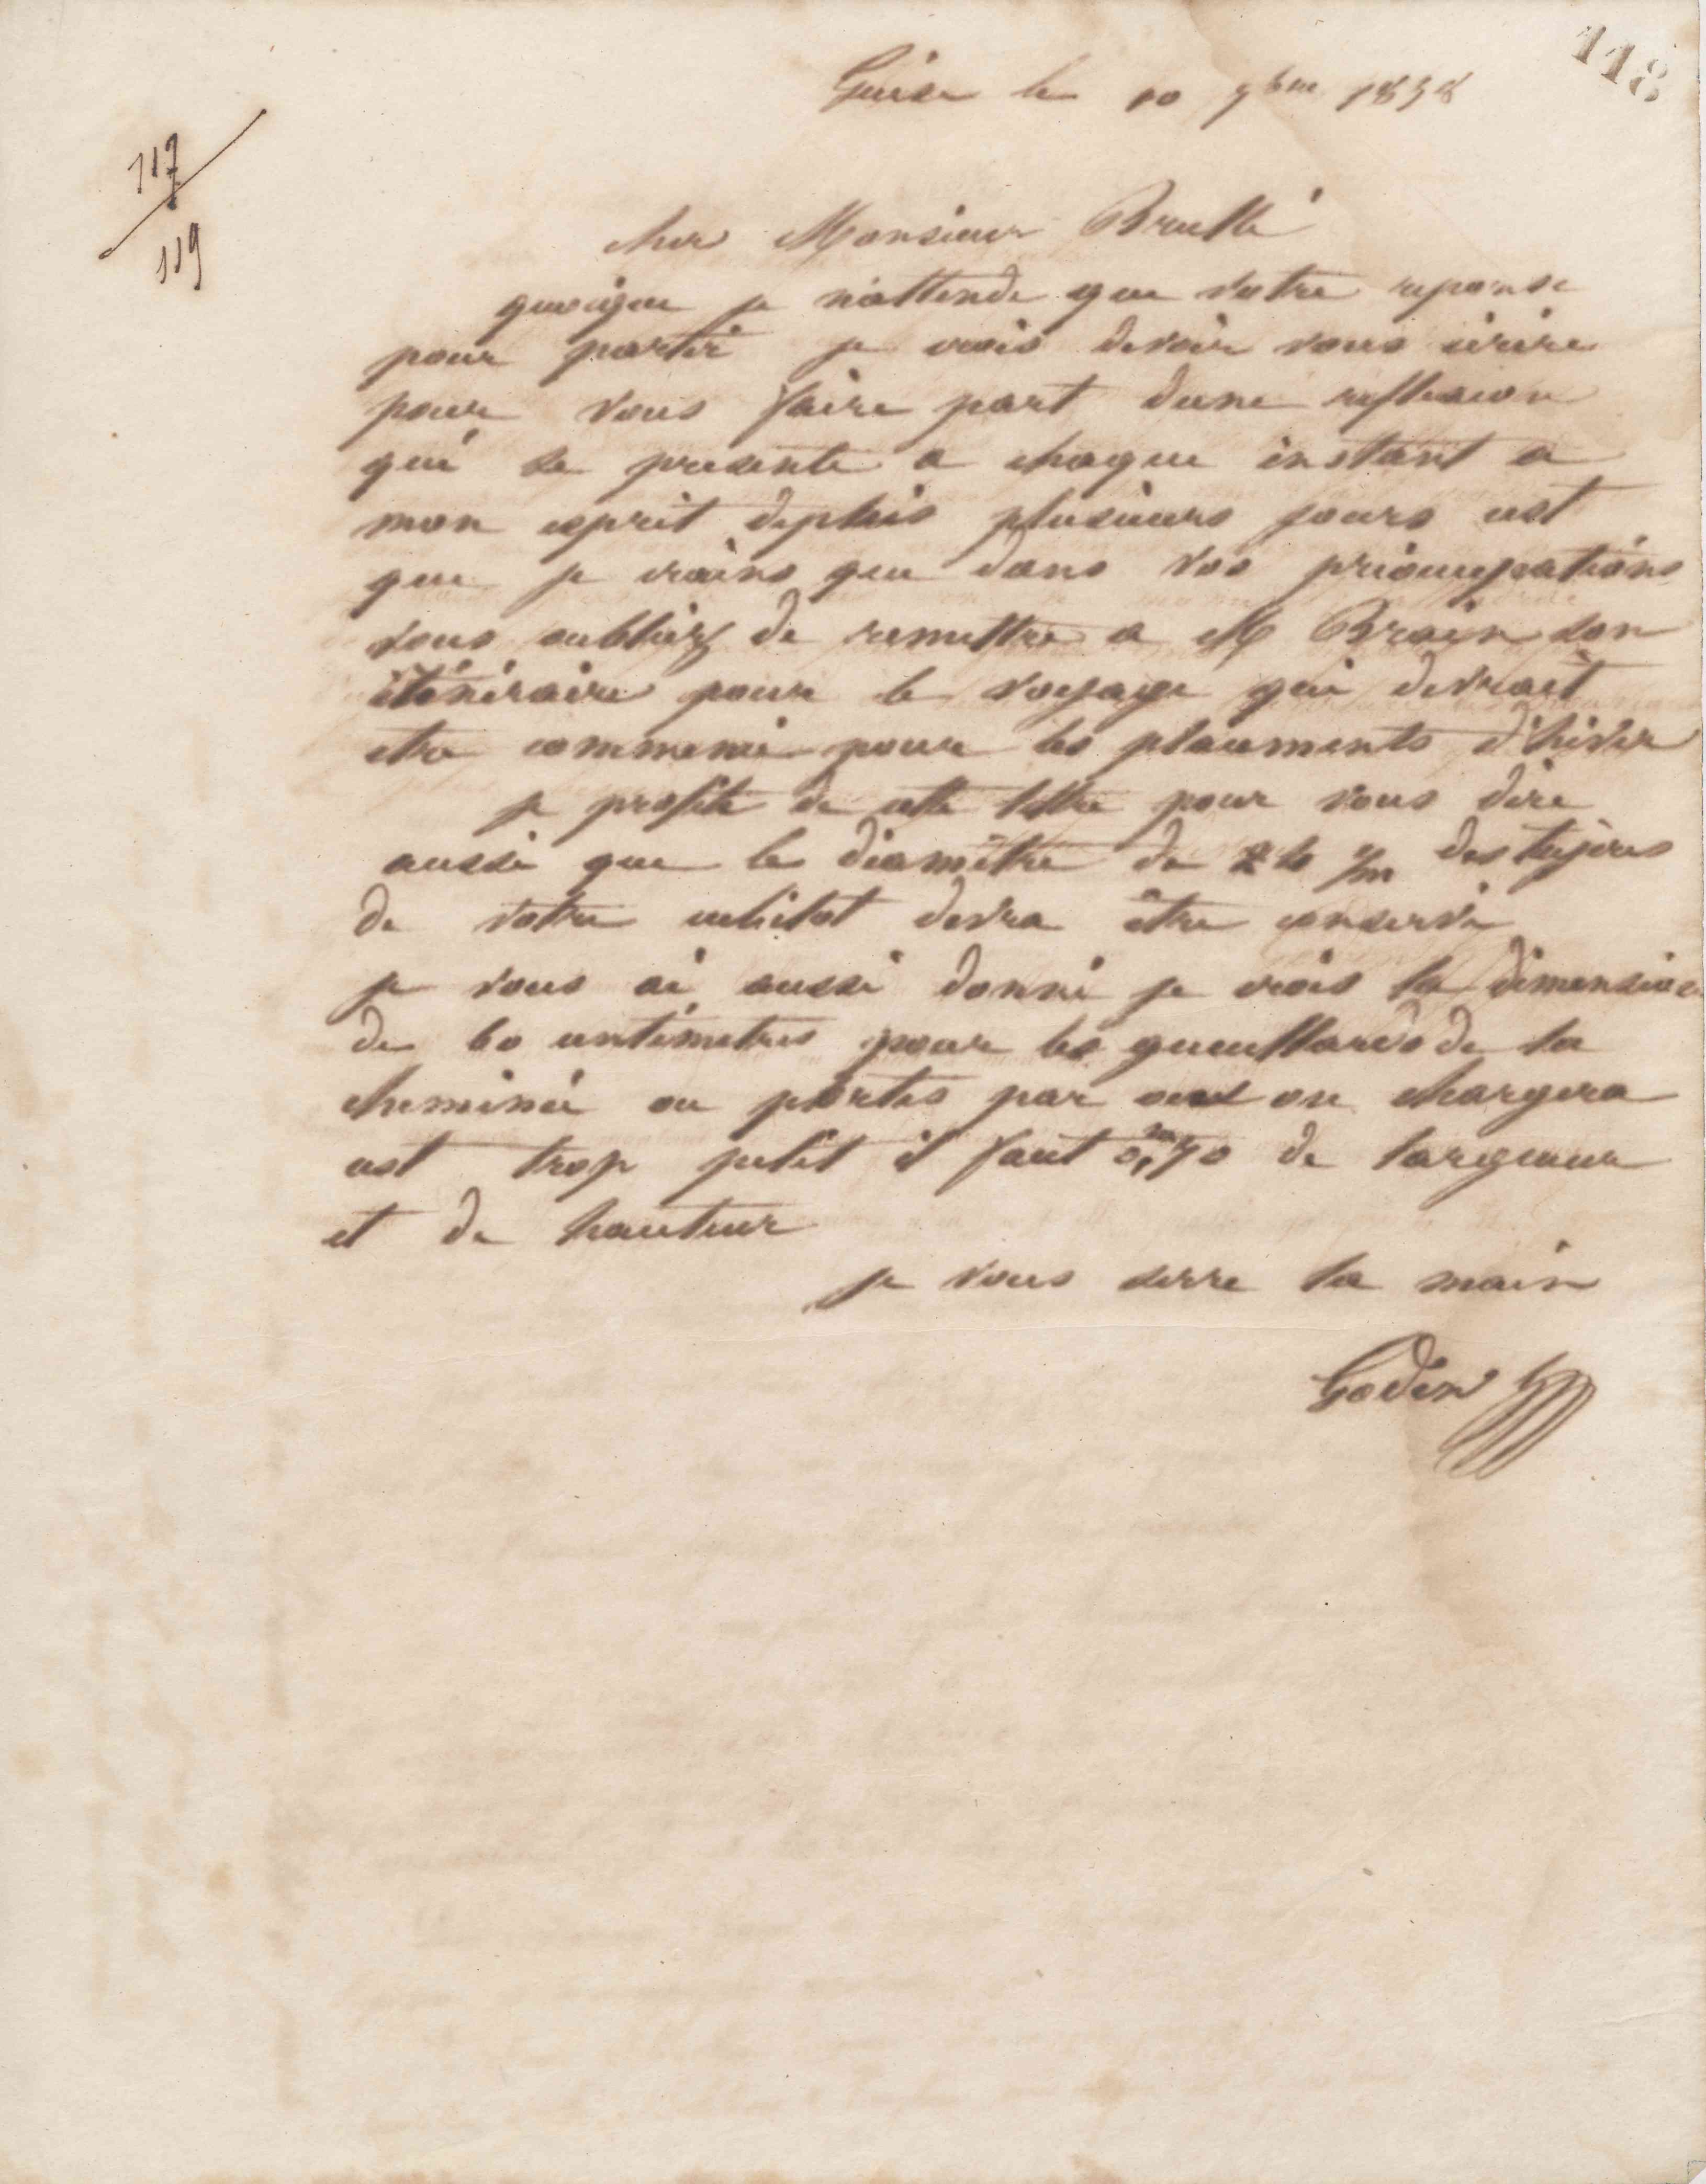 118
Guise le 10 9bre 1858
117
119
cher Monsieur Brullé
quoique je n'attende que votre reponse
pour partir je crois devoir vous écrire
pour vous faire part dune reflexion
qui se presente a chaque instant a
mon esprit depuis plusieurs jours cest
que je crains que dans vos préoccupations
vous oubliez de remettre a M Brain son
itinéraire pour le voyage qui devrait
etre commencé pour les placements d'hiver
je profite de cette lettre pour vous dire
aussi que le diamètre de des tuyères
de votre cubilot devra être conservé
je vous ai aussi donné je crois la dimension
de 60 centimetres pour les gueullards de la
cheminée ou portes par ou on chargera
cest trop petit il faut 0,m70 de largueur
et de hauteur
je vous serre la main
Godin